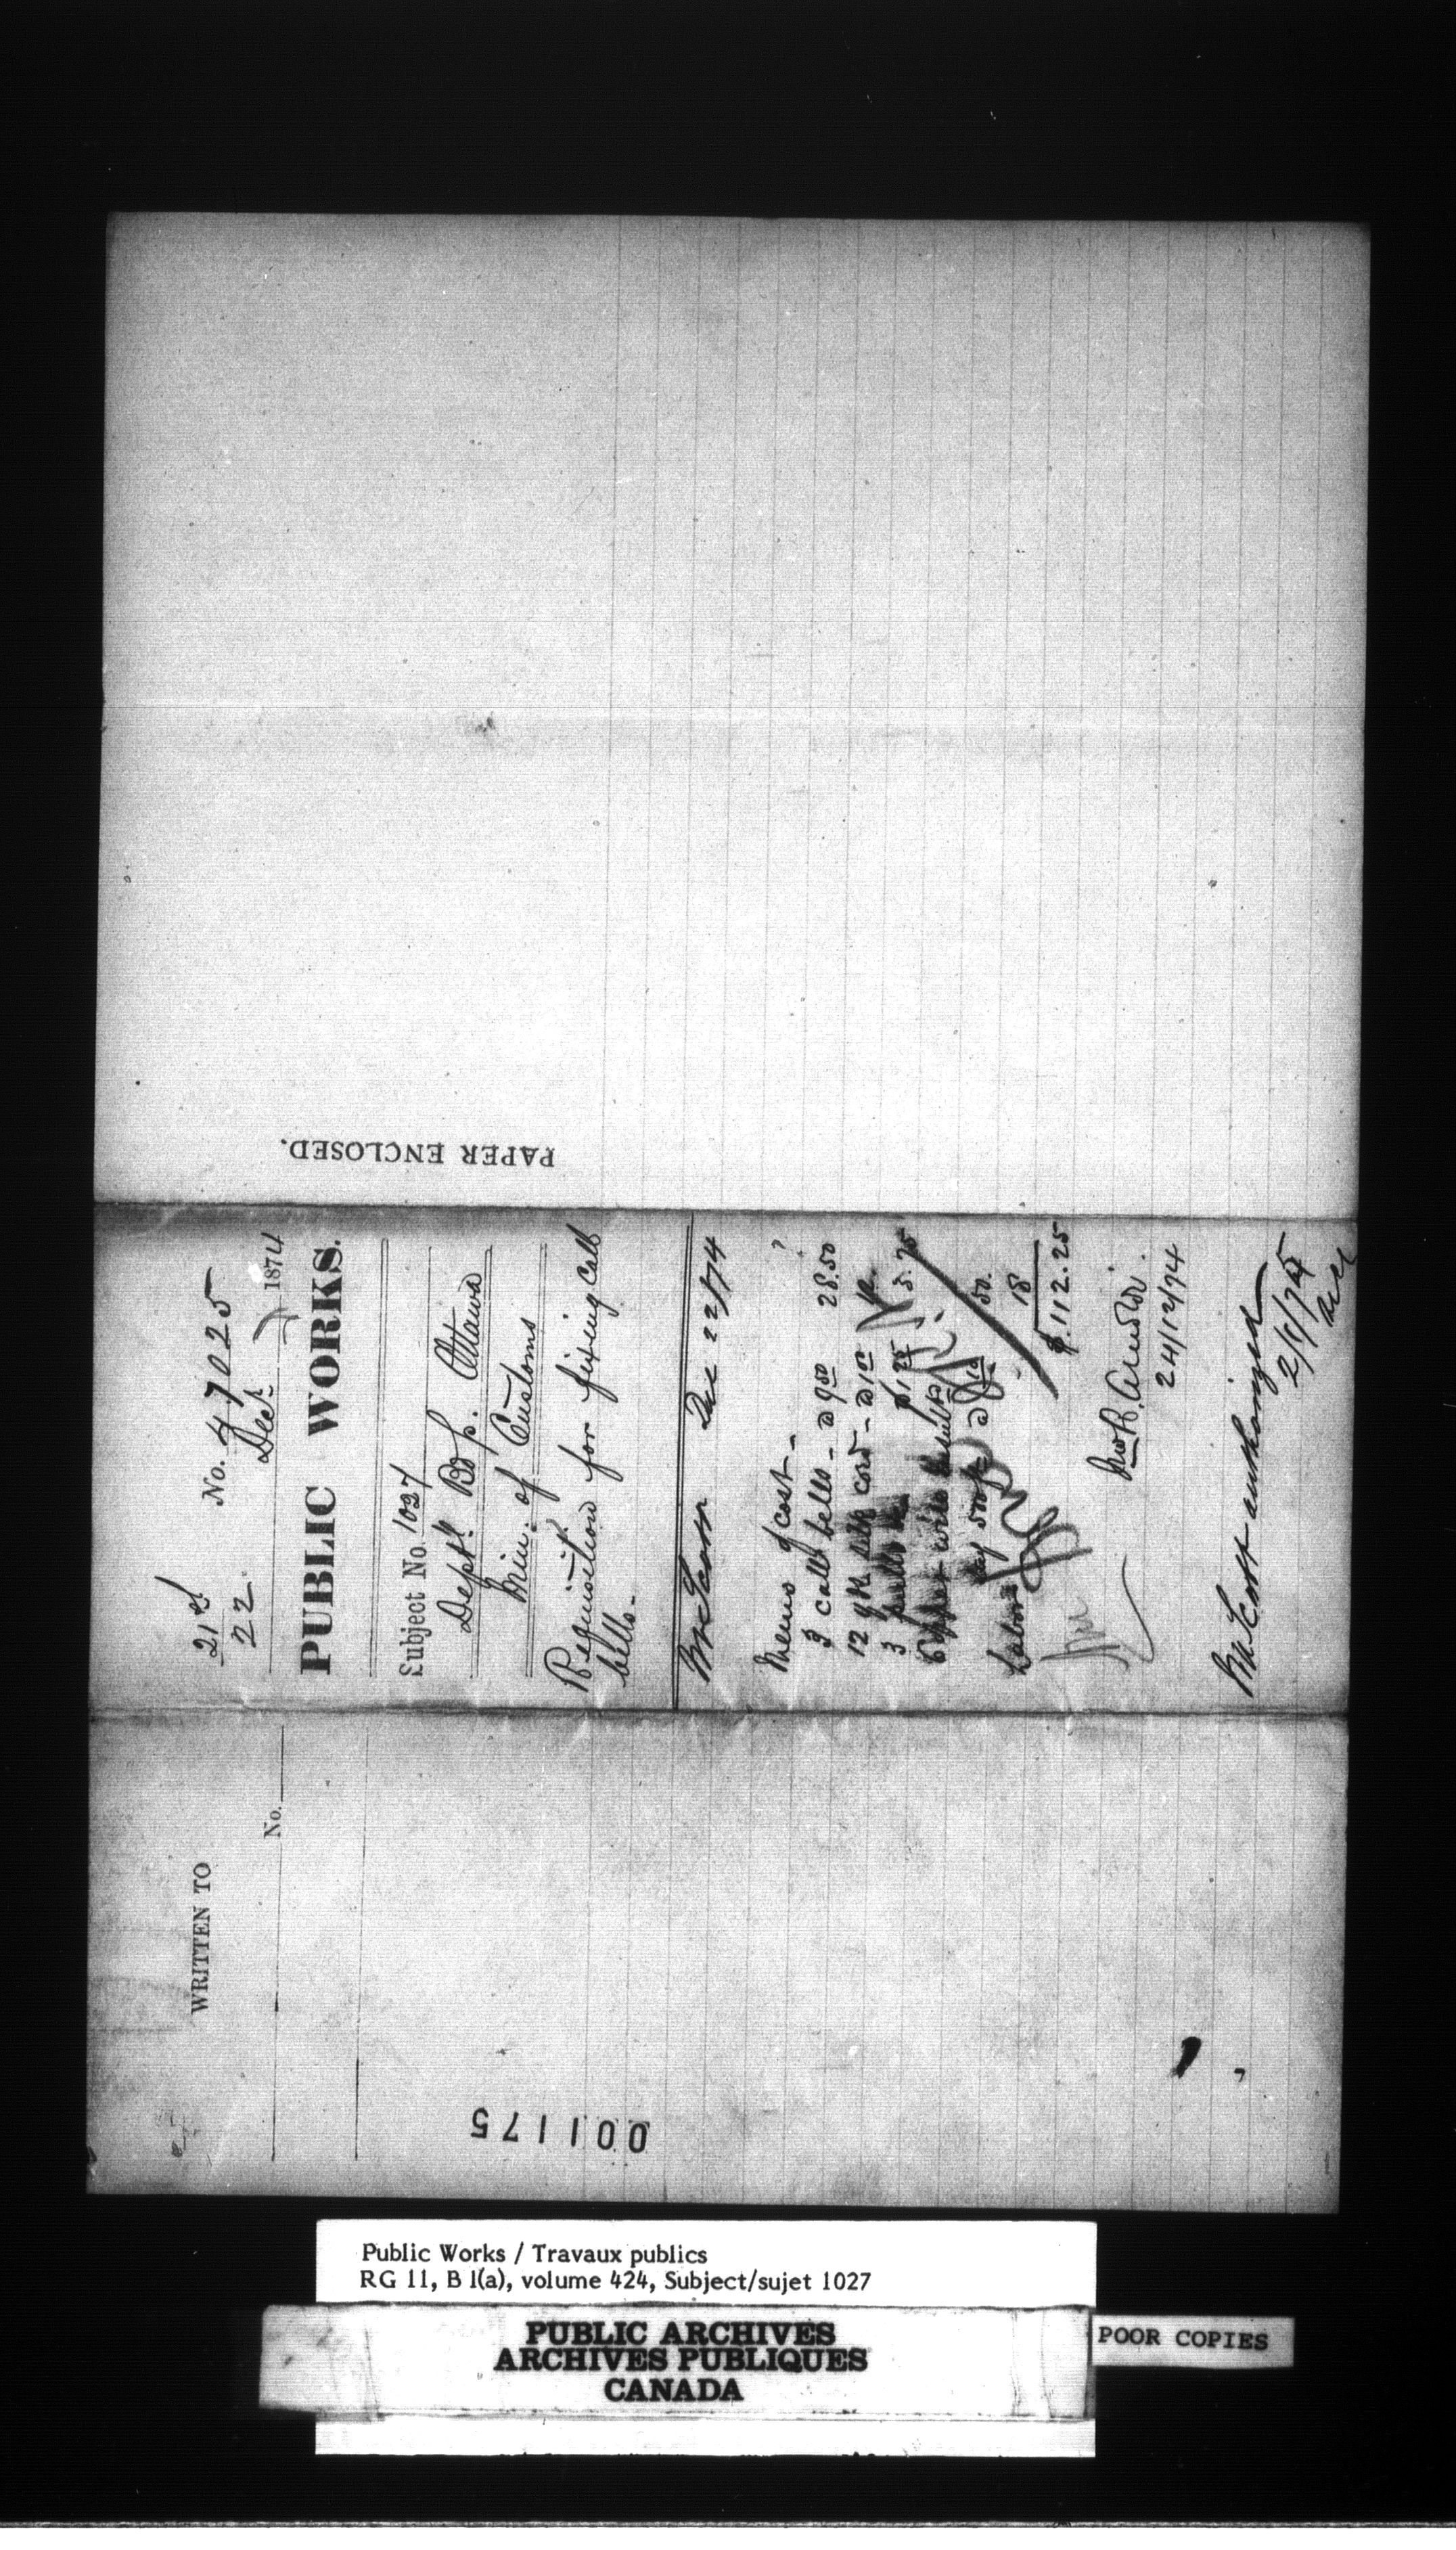 PAPER ENCLOSED.
21st
22
No. 47025
Dect 1874
PUBLIC WORKS.
Subject No. 1027
Deptl Bdg. Ottawa
Min. of Customs
Requisition for fixing call
bells-
Mr Scott Dec 22/74
Memo of cost -
3 call bells - @ 9.50 28.50
12 yds silk cord - @ 1.00 12.
3 pulls @ 1.25 3.75
Copper wire
500 ft @ 10 50.
Labor 18
$112.25
24/12/74
Mr Scott authorized
2/1/75
WRITTEN TO
No.
001175
Public Works / Travaux publics
RG 11, B 1(a), volume 424, Subject/sujet 1027
PUBLIC ARCHIVES
ARCHIVES PUBLIQUES
CANADA
POOR COPIES